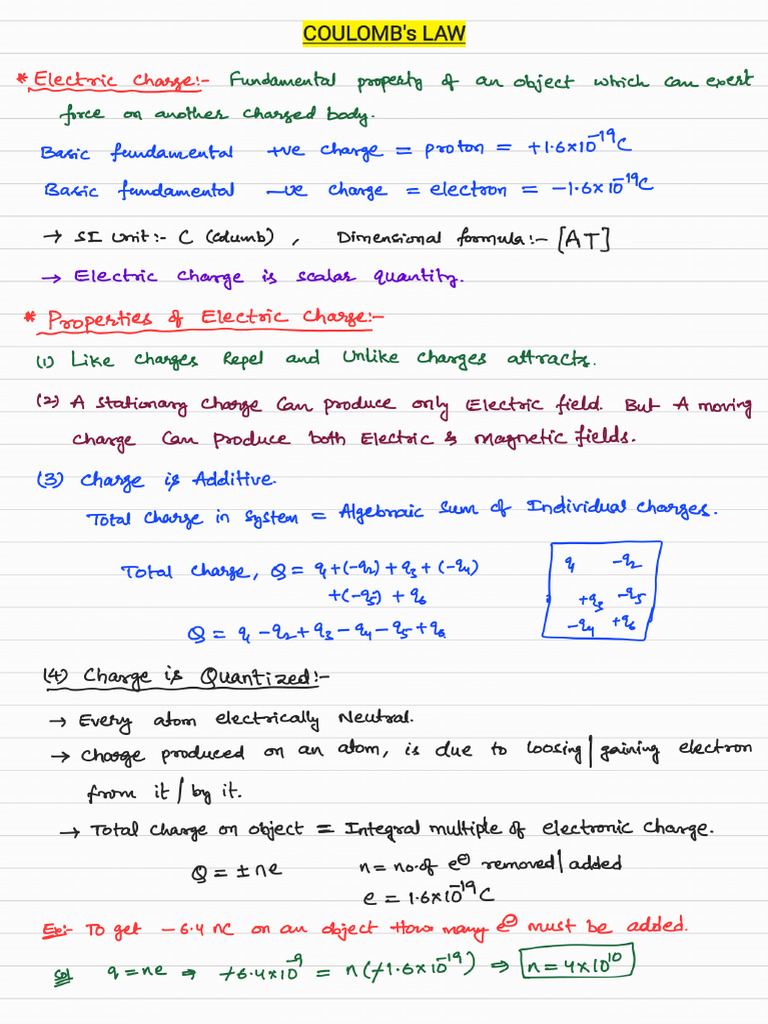 COULOMB's LAW
* Electric Charge:- Fundamental property of an object which can exert
force on another charged body.
Basic fundamental +ve charge = proton = +1.6×10⁻¹⁹C
Basic fundamental -ve charge = electron = -1.6×10⁻¹⁹C
→ SI Unit:- C (columb) , Dimensional formula:- [AT]
→ Electric Charge is scalar quantity.
* Properties of Electric Charge:-
(1) Like Charges Repel and Unlike Charges attracts.
(2) A stationary charge Can produce only Electric field. But A moving
charge Can Produce both Electric & magnetic fields.
(3) Charge is Additive.
Total Charge in System = Algebraic Sum of Individual Charges.
Total Charge, Q = q₁+(-q₂)+q₃+(-q₄)
+(-q₅)+q₆
Q = q₁-q₂+q₃-q₄-q₅+q₆
q₁ -q₂
+q₃ -q₅
-q₄ +q₆
(4) Charge is Quantized:-
→ Every atom electrically Neutral.
→ Charge produced on an atom, is due to loosing/gaining electron
from it/by it.
→ Total charge on object = Integral multiple of electronic charge.
Q = ±ne n = no.of e⊖ removed/added
e = 1.6×10⁻¹⁹C
Ex:- To get -6.4 nC on an object How many e⊖ must be added.
Sol q = ne ⇒ -6.4×10⁻⁹ = n(-1.6×10⁻¹⁹) ⇒ n = 4×10¹⁰